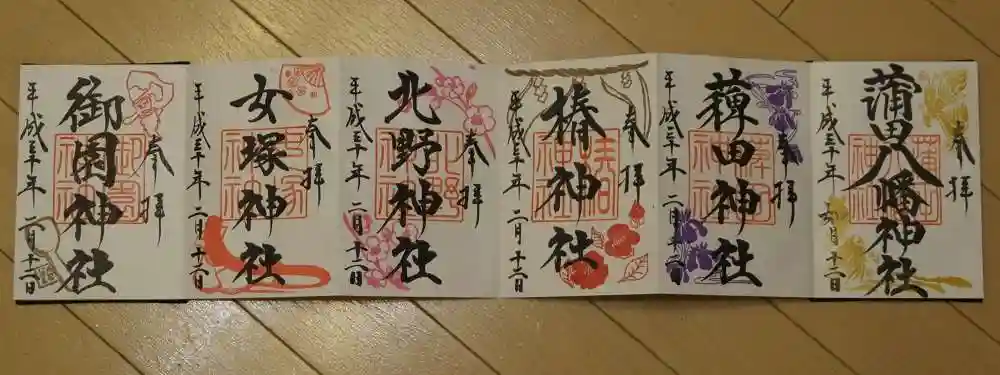 奉拝
蒲田八幡神社
平成三十年二月十二日
奉拝
薭田神社
平成三十年二月十二日
奉拝
椿神社
平成三十年二月十二日
奉拝
北野神社
平成三十年二月十二日
奉拝
女塚神社
平成三十年二月十二日
奉拝
御園神社
平成三十年二月十二日